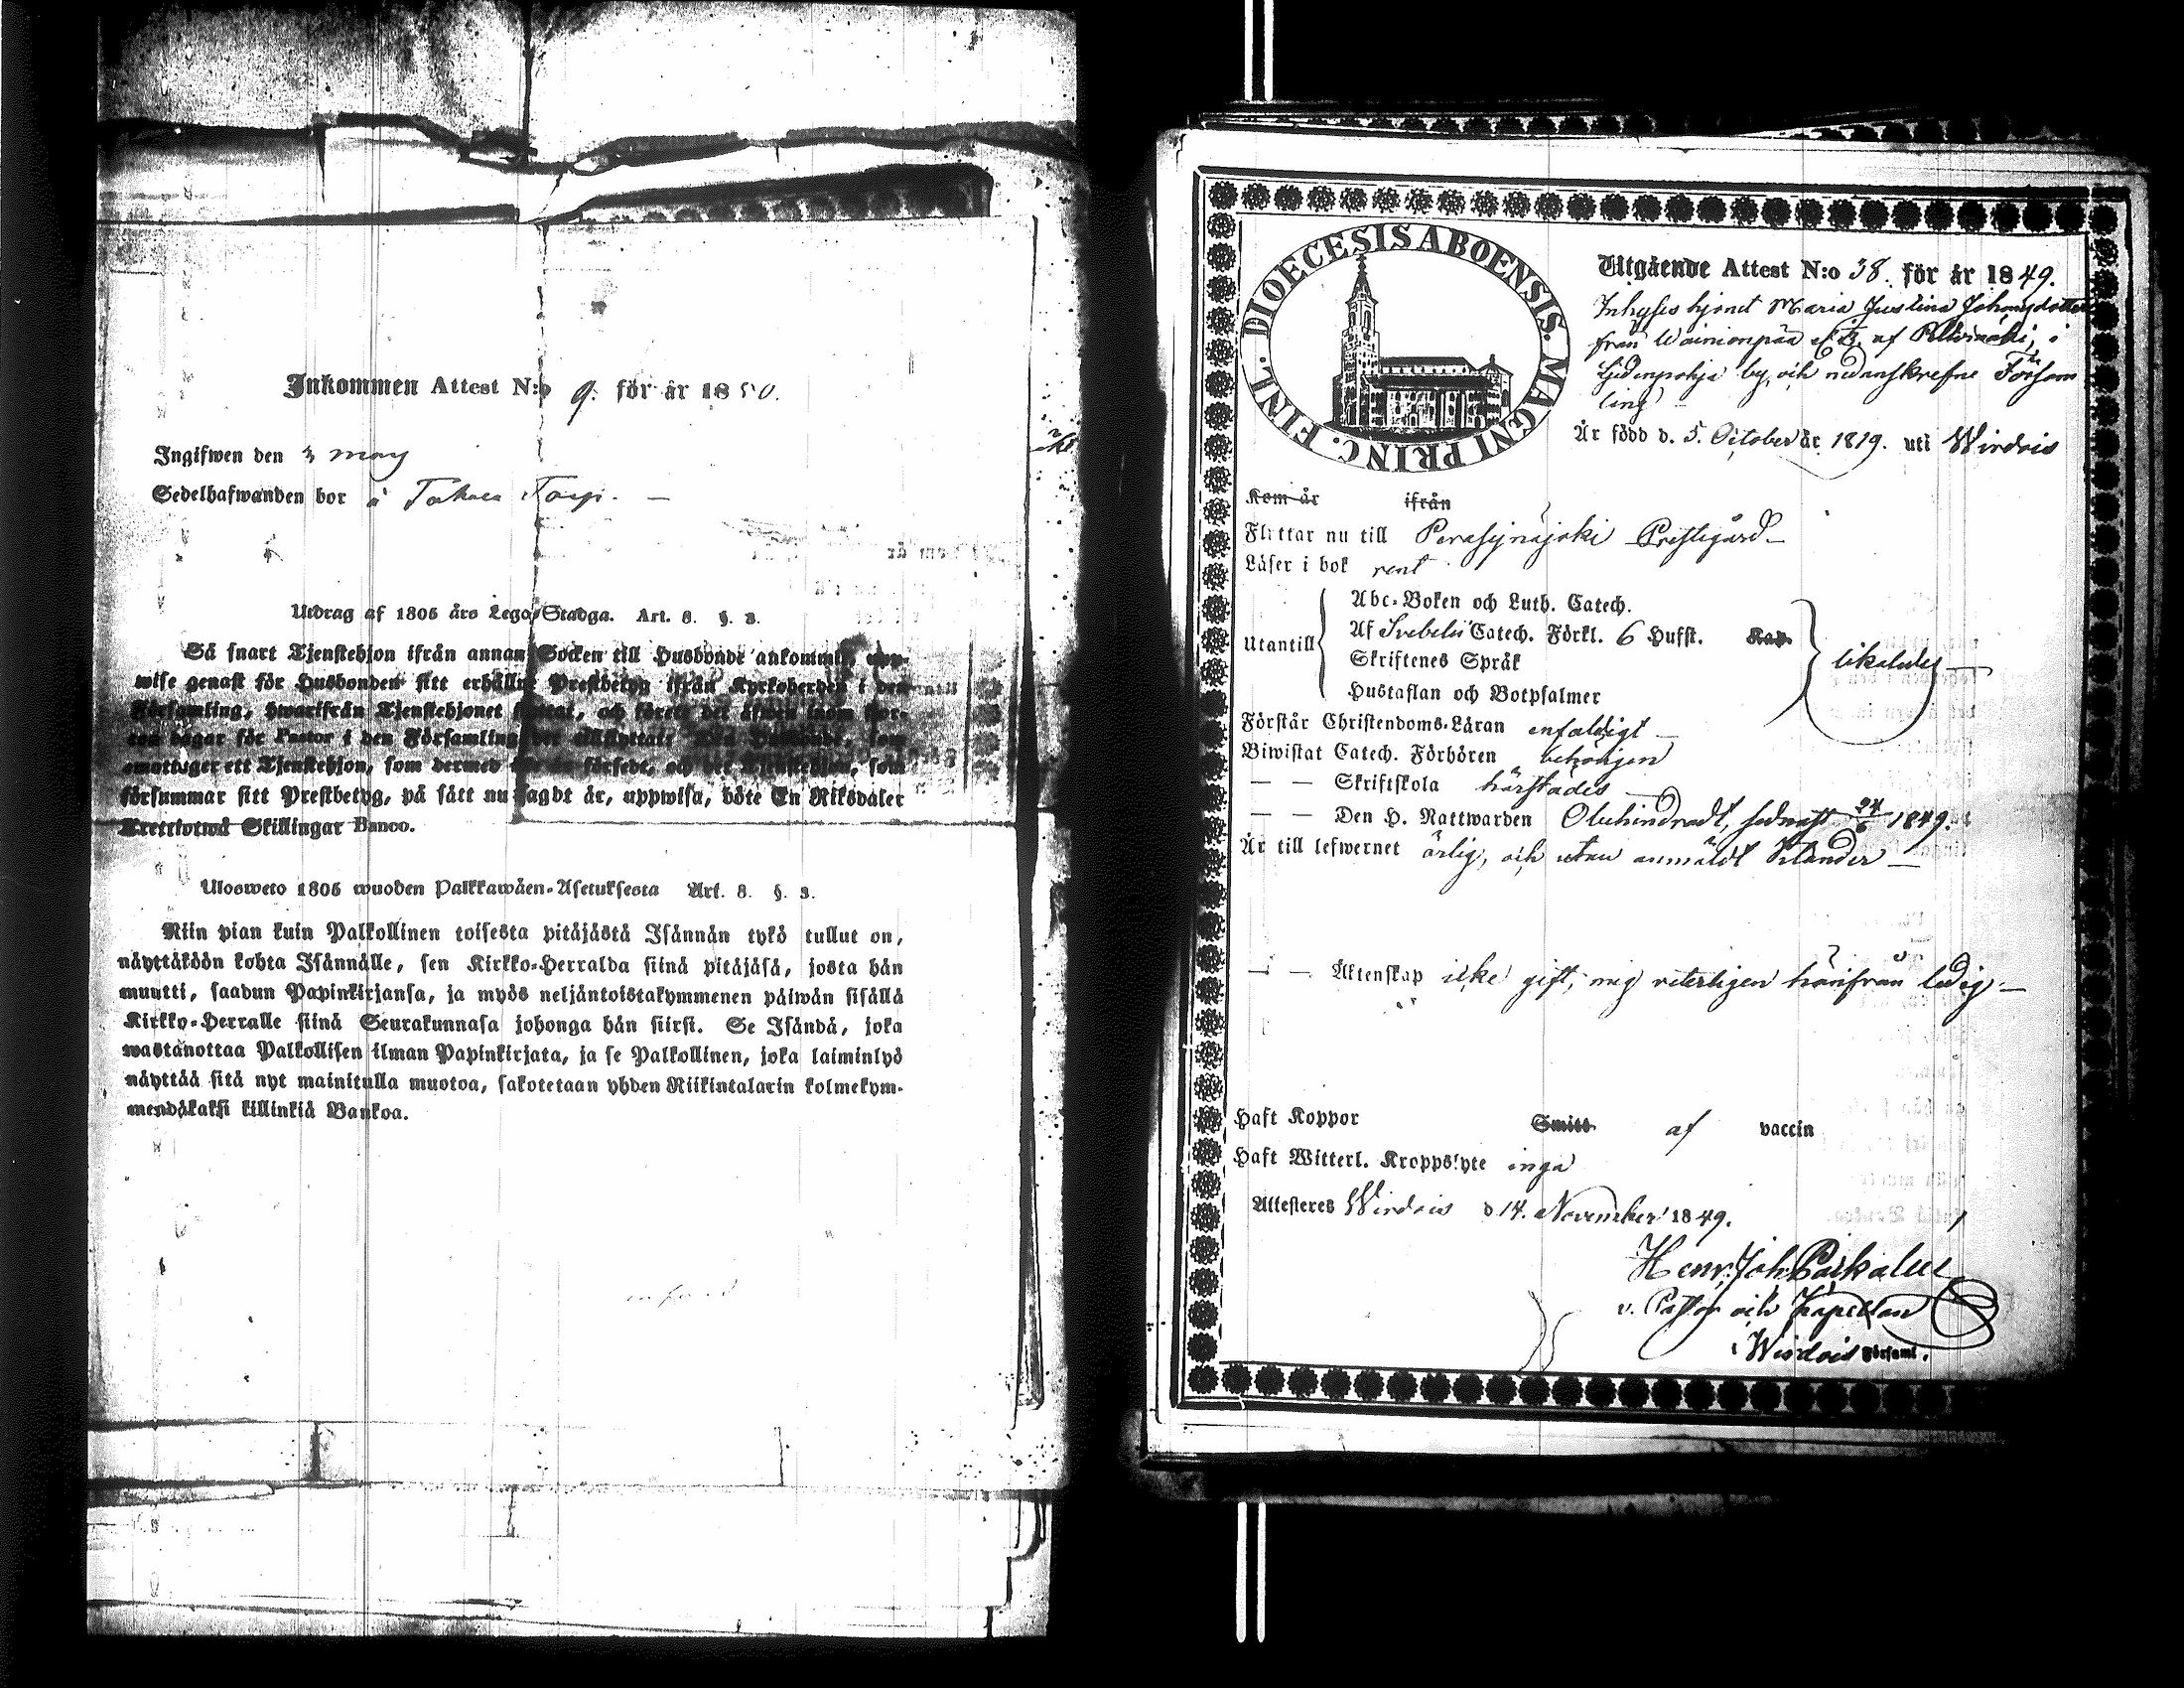 Inkommen Attest N:o 9. för år 1850.
Ingifwen den 3 may
Sedelhafwanden bor å Torp.
Utdrag af 1805 års Lego-Stadga. Art. 8. §. 3.
Så snart Tjenstehjon ifrån annan Socken till Husbonde ankommit, upp-
wise genast för Husbonden sitt erhållne Prestbetyg ifrån Kyrkoherden i den
Församling, hwarifrån Tjenstehjonet och
dagar för Pastor i den Församling
emottager ett Tjenstehjon, som dermed som
försummar sitt Prestbetyg, på sätt nu sagdt är, uppwisa, böte En Riksdaler
Trettiotwå Skillingar Banco.
Ulosweto 1805 wuoden Palkkawäen-Asetuksesta Art. 8. §. 3.
Niin pian kuin Palkollinen toisesta pitäjästä Isännän tykö tullut on,
näyttäköön kohta Isännälle, sen Kirkko-Herralda siinä pitäjäsä, josta hän
muutti, saadun Papinkirjansa, ja myös neljäntoistakymmenen päiwän sisällä
Kirkko-Herralle siinä Seurakunnasa johonga hän siirsi. Se Isändä, joka
wastanottaa Palkollisen ilman Papinkirjata, ja se Palkollinen, joka laiminlyö
näyttää sitä nyt mainitulla muotoa, sakotetaan yhden Riikintalarin kolmekym-
mendäkaksi killinkiä Bankoa.
DIOECESIS ABOENSIS. MAGNI PRINC. FINL.
Utgående Attest N:o 38. för år 1849.
Inhyses hjonet Maria Justina Johansdotter
från Wainionpää af i
Liedenpohja by, och nedanskrefne Försam
ling
Är född d. 5. October år 1819. uti Wirdois
Kom år ifrån
Flyttar nu till Peräsejnäjoki Prestgård
Läser i bok rent
Utantill
Abc-Boken och Luth. Catech.
Af Svebelii Catech. Förkl. 6 Hufst. Kap.
Skriftenes Språk
Hustaflan och Botpsalmer
likaledes
Förstår Christendoms-Läran enfaldigt
Biwistat Catech. Förhören behörigen
— — Skriftskola härstädes
— — Den H. Nattwarden Obehindradt, sednast 24/6 1849.
Är till lefwernet ärlig, och utan anmäldt
— — Äktenskap icke gift, mig veterligen härifrån ledig
Haft Koppor Smitt af vaccin
Haft Witterl. Kroppslyte inga
Attesteres Wirdois d 14. November 1849.
Henr. Joh.
v. Pastor och Kapellan
i Wirdois Församl.